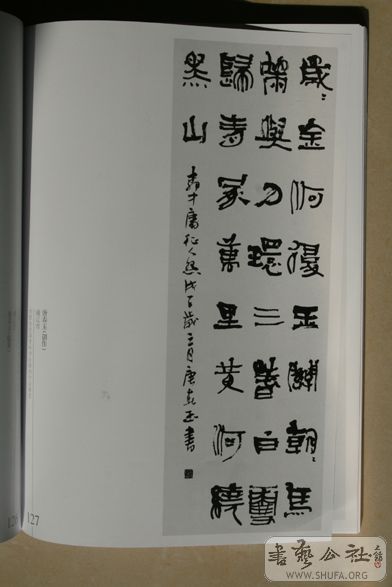 歲々金河復玉關朝々馬
策與刀環三春白雪
歸青冢萬里黄河繞
黑山
庸征人怨戊子歲三月唐春玉書
127
書藝公社
WWW.SHUFA.ORG